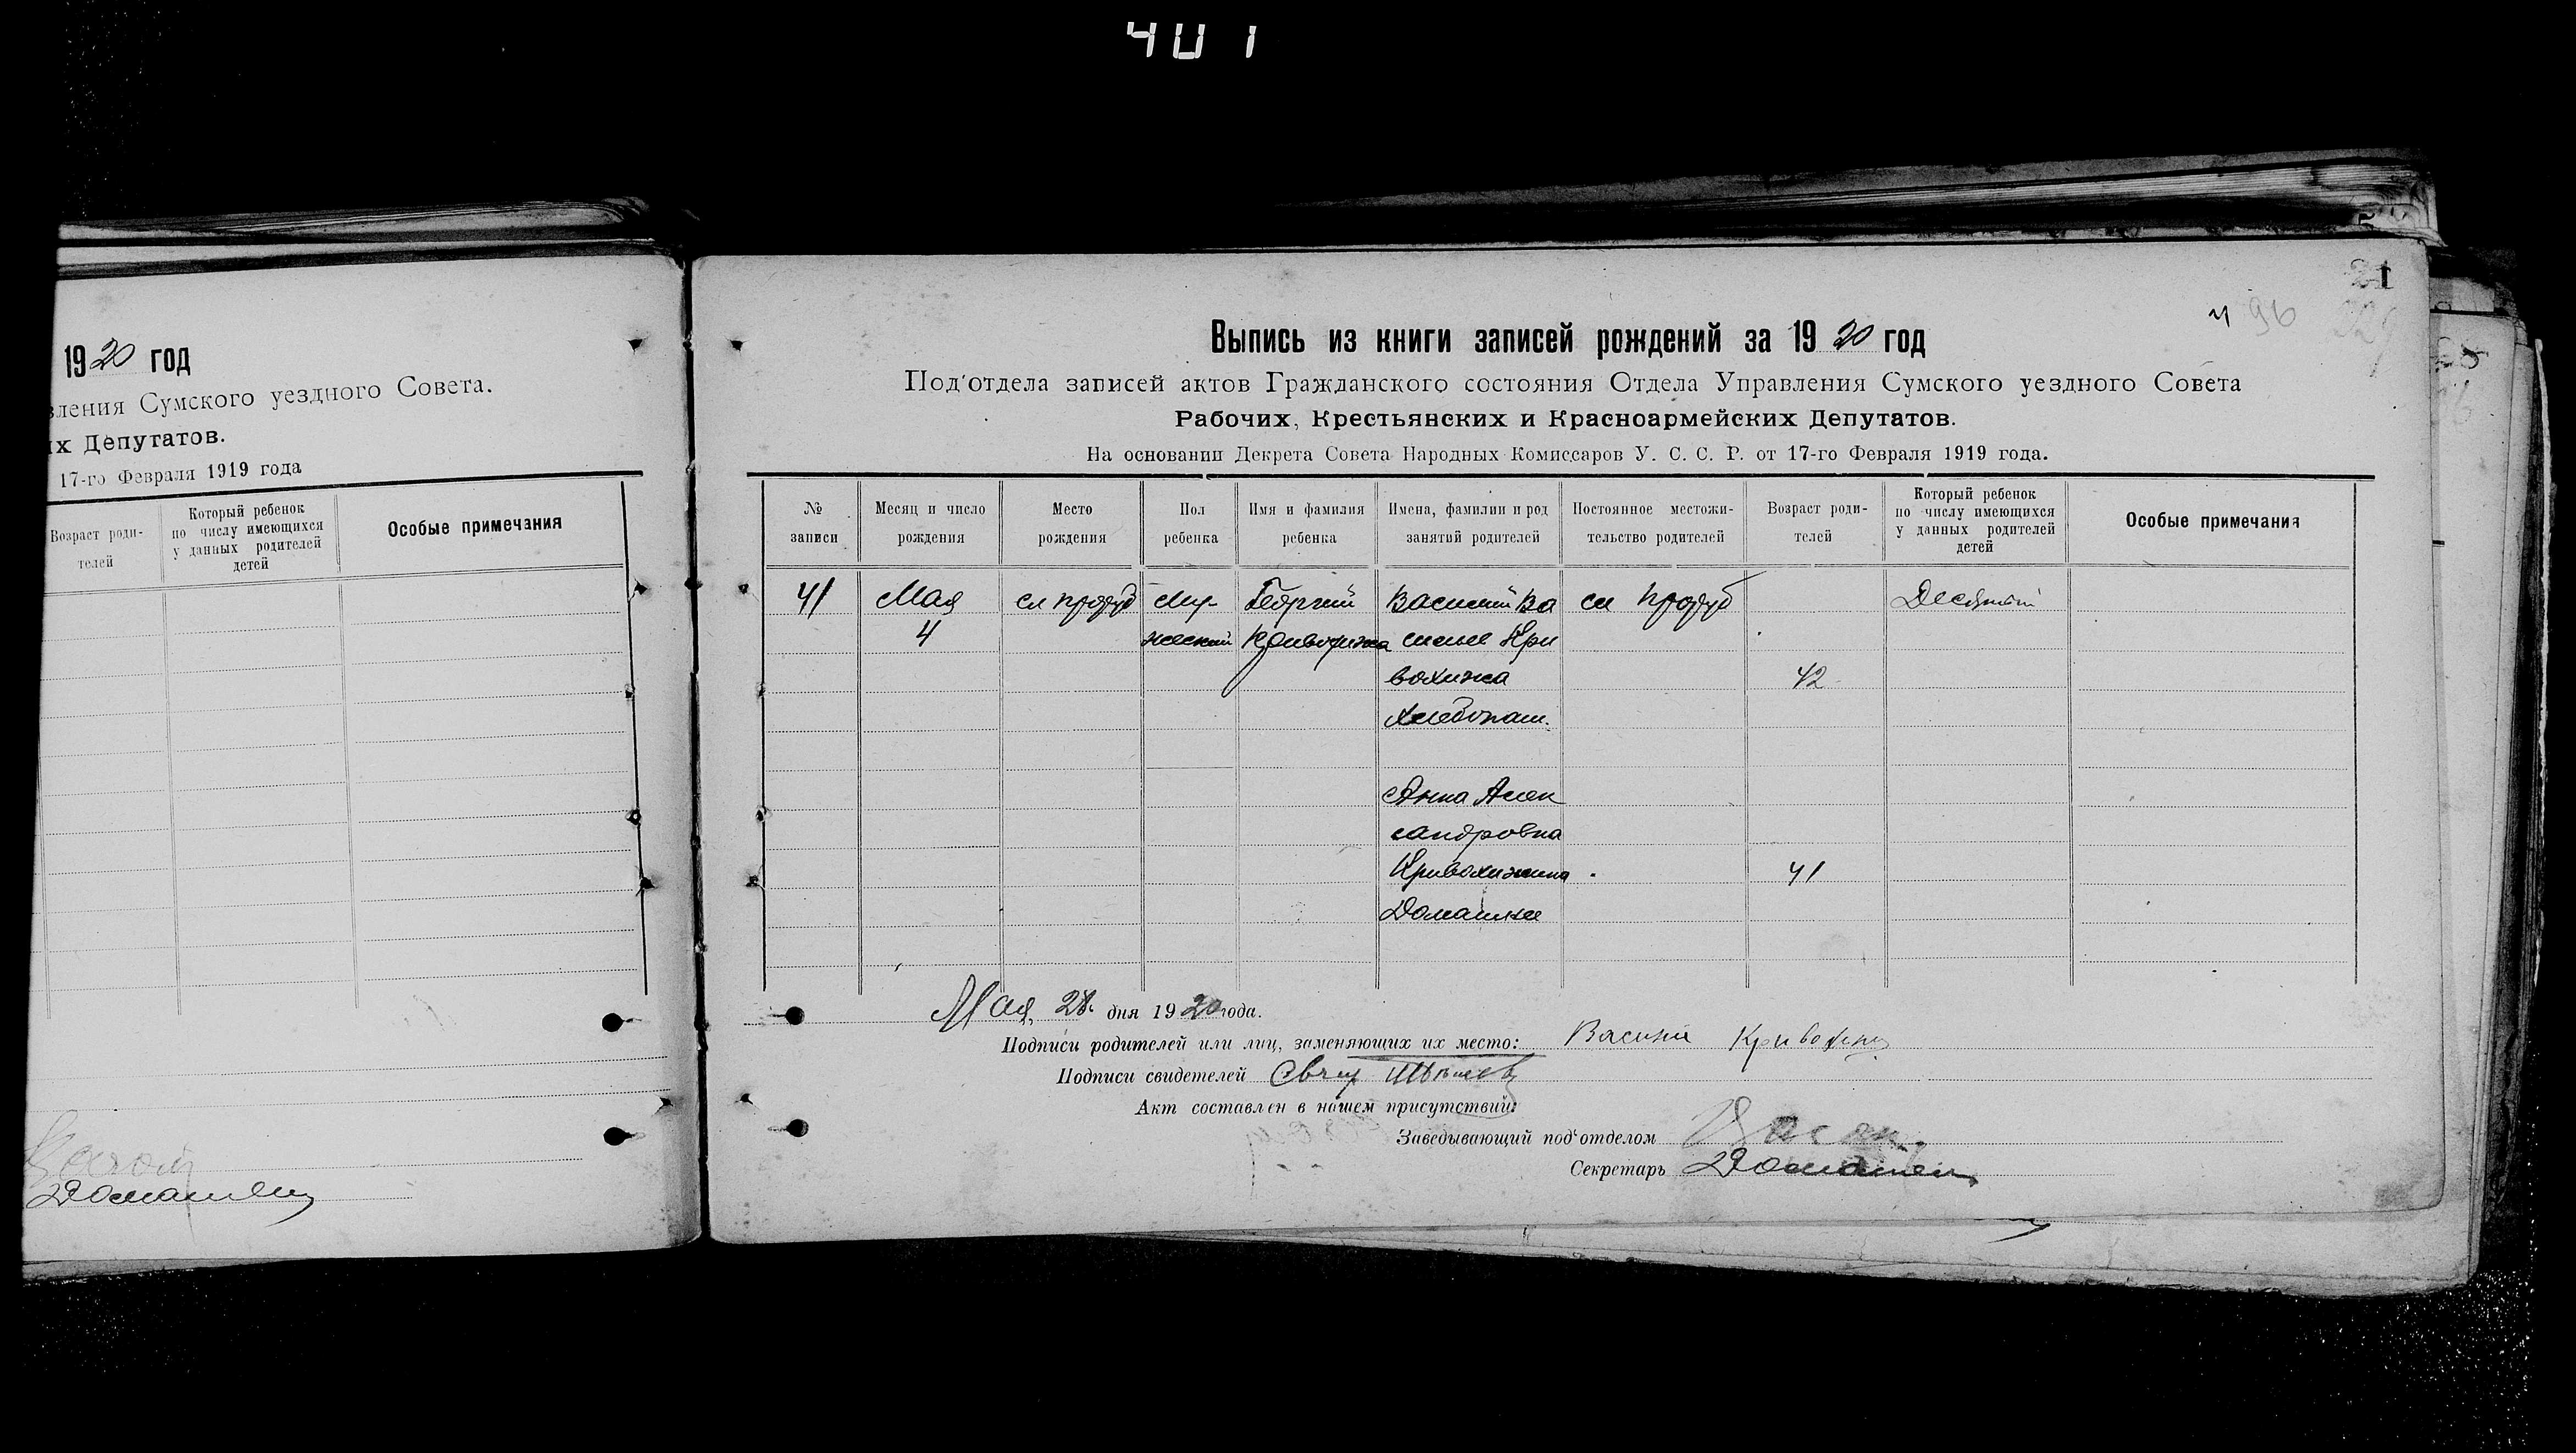 401
1920 год
вления Сумского уездного Совета.
их Депутатов.
17-го Февраля 1919 года
Возраст роди-
телей
Который ребенок
по числу имеющихся
у данных родителей
детей
Особые примечания
Домашен
21
96
Выпись из книги записей рождений за 1920 год
Под'отдела записей актов Гражданского состояния Отдела Управления Сумского уездного Совета
Рабочих, Крестьянских и Красноармейских Депутатов.
На основании Декрета Совета Народных Комиссаров У. С. С. Р. от 17-го Февраля 1919 года.
№
записи
Месяц и число
рождения
Место
рождения
Пол
ребенка
Имя и фамилия
ребенка
Имена, фамилии и род
занятий родителей
Постоянное местожи-
тельство родителей
Возраст роди-
телей
Который ребенок
по числу имеющихся
у данных родителей
детей
Особые примечания
41 Мая сл Му- Георгий Василий Ва сл Десятый
4 жеский Кривохижа Кри
вохижа 42
хлебопаш.
Анна Алек
сандровна
Кривохижина 41
Домашн
Мая 28 дня 1920 года.
Подписи родителей или лиц, заменяющих их место: Василий
Подписи свидетелей
Акт составлен в нашем присутствии:
Заведывающий под'отделом
Секретарь Домашен